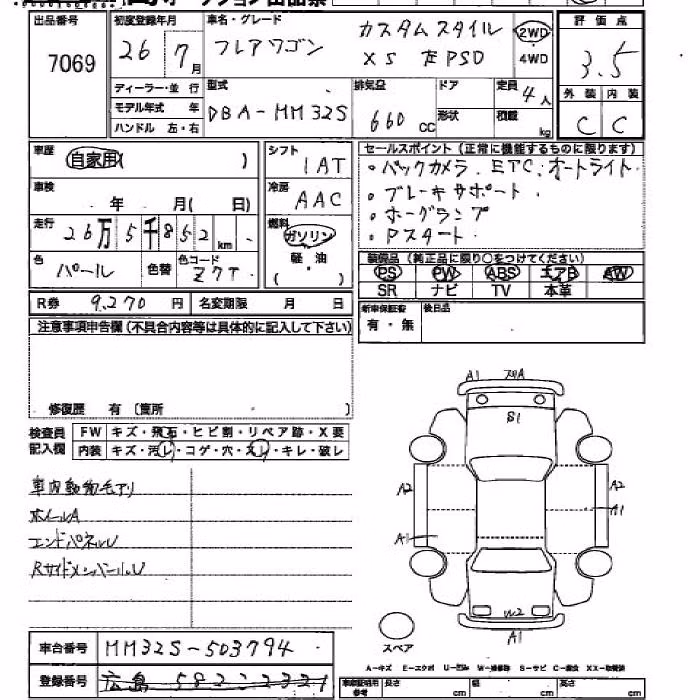 出品番号 7069
初度登録年月 26 7月
車名・グレード フレアワゴン カスタムスタイル XS 左PSD
2WD ・ 4WD
評価点 3.5
外装 内装
C C
ディーラー・並行
モデル年式 年
ハンドル 左・右
型式 DBA-MM32S
排気量 660cc
ドア
形状
定員 4人
積載 kg
車歴 自家用( )
車検 年 月( 日)
走行 26万5千852km
色 パール 色替 色コード Z7T
シフト IAT
冷房 AAC
燃料 ガソリン
軽・油
( )
R券 9,270円 名変期限 月 日
セールスポイント(正常に機能するものに限ります)
・バックカメラ.ETC.オートライト.
・ブレーキサポート.
・ホーグランプ
・Pスタート.
装備品(純正品に限り○をつけてください)
PS PW ABS エアB AW
SR ナビ TV 本革
新車保証書 有・無 後日品
注意事項申告欄(不具合内容等は具体的に記入して下さい)
修復歴 有〔箇所 〕
検査員記入欄
FW キズ・飛石・ヒビ割・リペア跡・X要
内装 キズ・汚レ・コゲ・穴・スレ・キレ・破レ
車内動物毛アリ
ホイールA
エンドパネルU
RサイドメンバールU
A1
S1
A2
A1
A2
A1
W2
A1
スペア
A-キズ E-エクボ U-凹み W-補修跡 S-サビ C-腐食 XX-取替済
車台番号 MM32S-503794
登録番号 広島 582 2321
車庫証明用参考 長さ cm 幅 cm 高さ cm